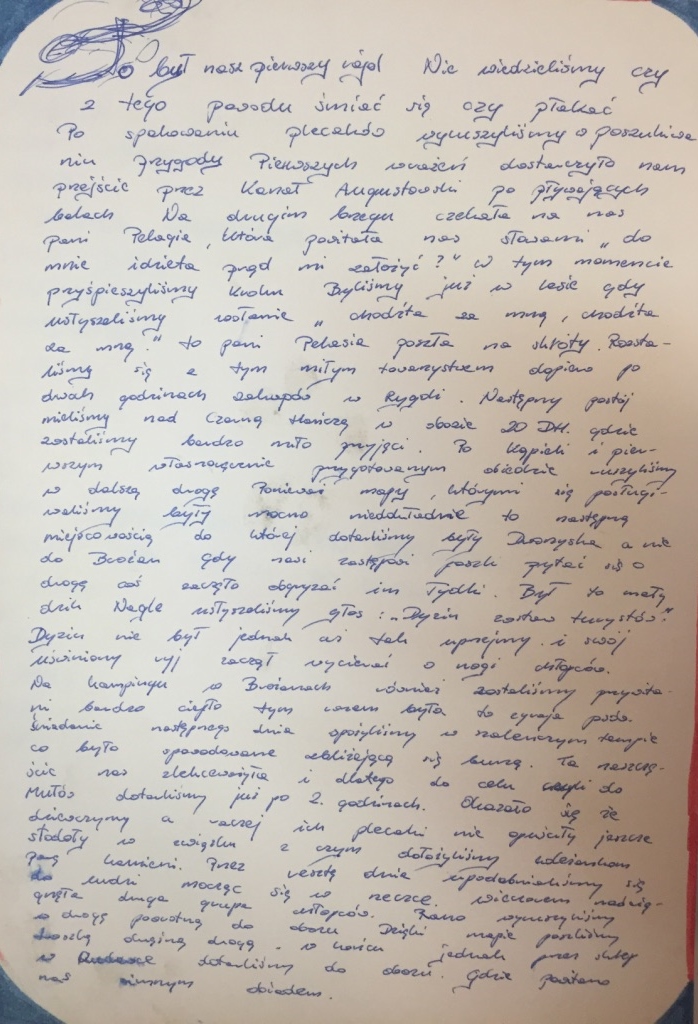 To był nasz pierwszy rajd Nie wiedzieliśmy czy
z tego powodu śmiać się czy płakać
Po spakowaniu plecaków wyruszyliśmy w poszukiwa
niu przygody Pierwszych wrażeń dostarczyło nam
przejście przez Kanał Augustowski po pływających
balach Na drugim brzegu czekała na nas
pani Pelagia, która powitała nas słowami „do
mnie idzieta prąd mi założyć?" W tym momencie
przyśpieszyliśmy kroku Byliśmy już w lesie gdy
usłyszeliśmy wołanie „chodźta za mną, chodźta
za mną." to pani Pelasia poszła na skróty. Rozsta-
liśmy się z tym miłym towarzystwem dopiero po
dwóch godzinach zakupów w Rygoli. Następny postój
mieliśmy nad Czarną Hańczą w obozie 20 DH. gdzie
zostaliśmy bardzo miło przyjęci. Po kąpieli i pier-
wszym własnoręcznie przygotowanym obiedzie ruszyliśmy
w dalszą drogę Ponieważ mapy, którymi się posługi-
waliśmy były mocno niedokładne to następną
miejscowością do której dotarliśmy były Dworczyska a nie
do Budzan gdy nasi zastępowi poszli pytać się o
drogę coś zaczęło obgryzać im łydki. Był to mały
dzik Nagle usłyszeliśmy głos: „Dyziu zostaw turystów."
Dyziu nie był jednak aż tak uprzejmy i swój
uśliniony ryj zaczął wycierać o nogi chłopców.
Na kampingu w również zostaliśmy przywita-
ni bardzo ciepło tym razem była to czyjaś
Śniadanie następnego dnia spożyliśmy w szaleńczym tempie
co było spowodowane zbliżającą się burzą. Ta na szczę-
ście nas zlekceważyła i dlatego do celu czyli do
Mułów dotarliśmy już po 2. godzinach. Okazało się że
dziewczyny a raczej ich plecaki nie opuściły jeszcze
stodoły w związku z czym dołożyliśmy koleżankom
parę kamieni. Przez resztę dnia upodabnialiśmy się
do ludzi mocząc się w rzeczce. wieczorem nadcią-
gnęła druga grupa chłopców. Rano wyruszyliśmy
w drogę powrotną do obozu Dzięki mapie poszliśmy
troszkę dłuższą drogą. w końcu jednak przez sklep
w dotarliśmy do obozu. Gdzie powitano
nas obiadem.